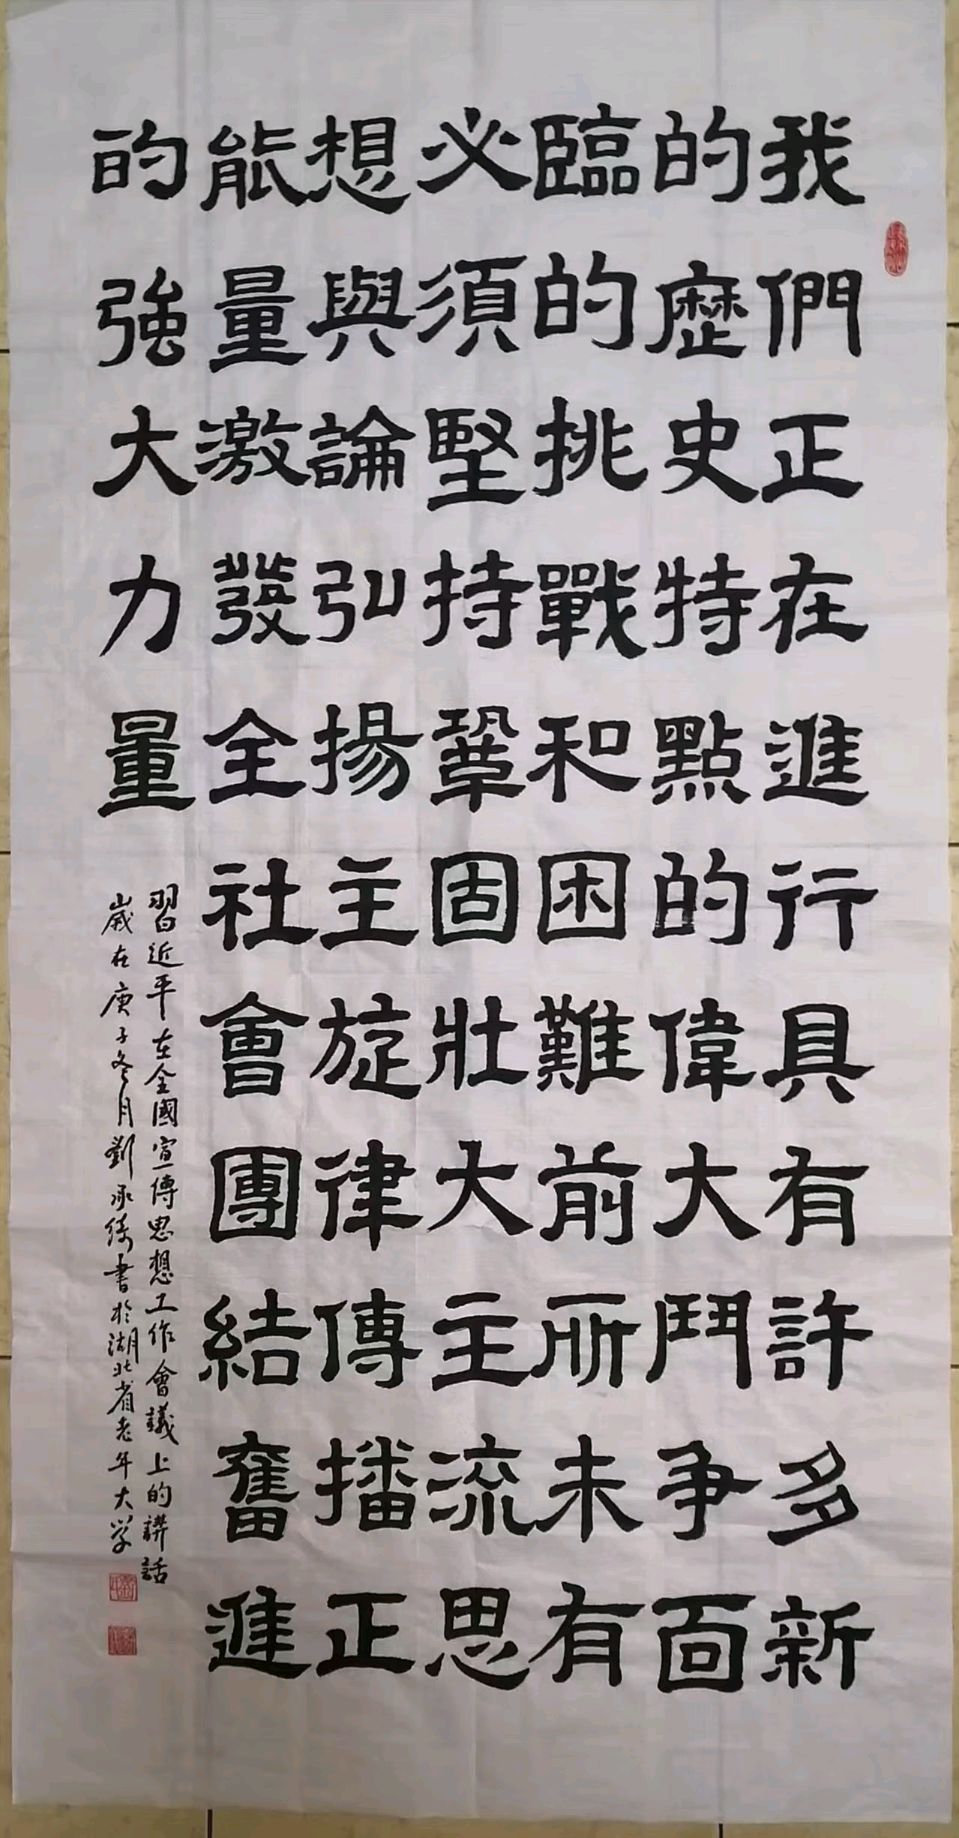 我們正在進行具有許多新
的歷史特點的偉大鬥争面
臨的挑戰和困難前所未有
必須堅持鞏固壯大主流思
想輿論弘揚主旋律傳播正
能量激發全社會團結奮進
的強大力量
習近平在全國宣傳思想工作會議上的講話
歲在庚子冬月劉承綺書於湖北省老年大学